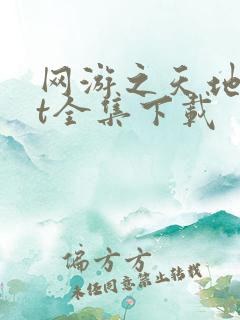 网游之天地
t全集下载
偏方方
未经同意禁止转载